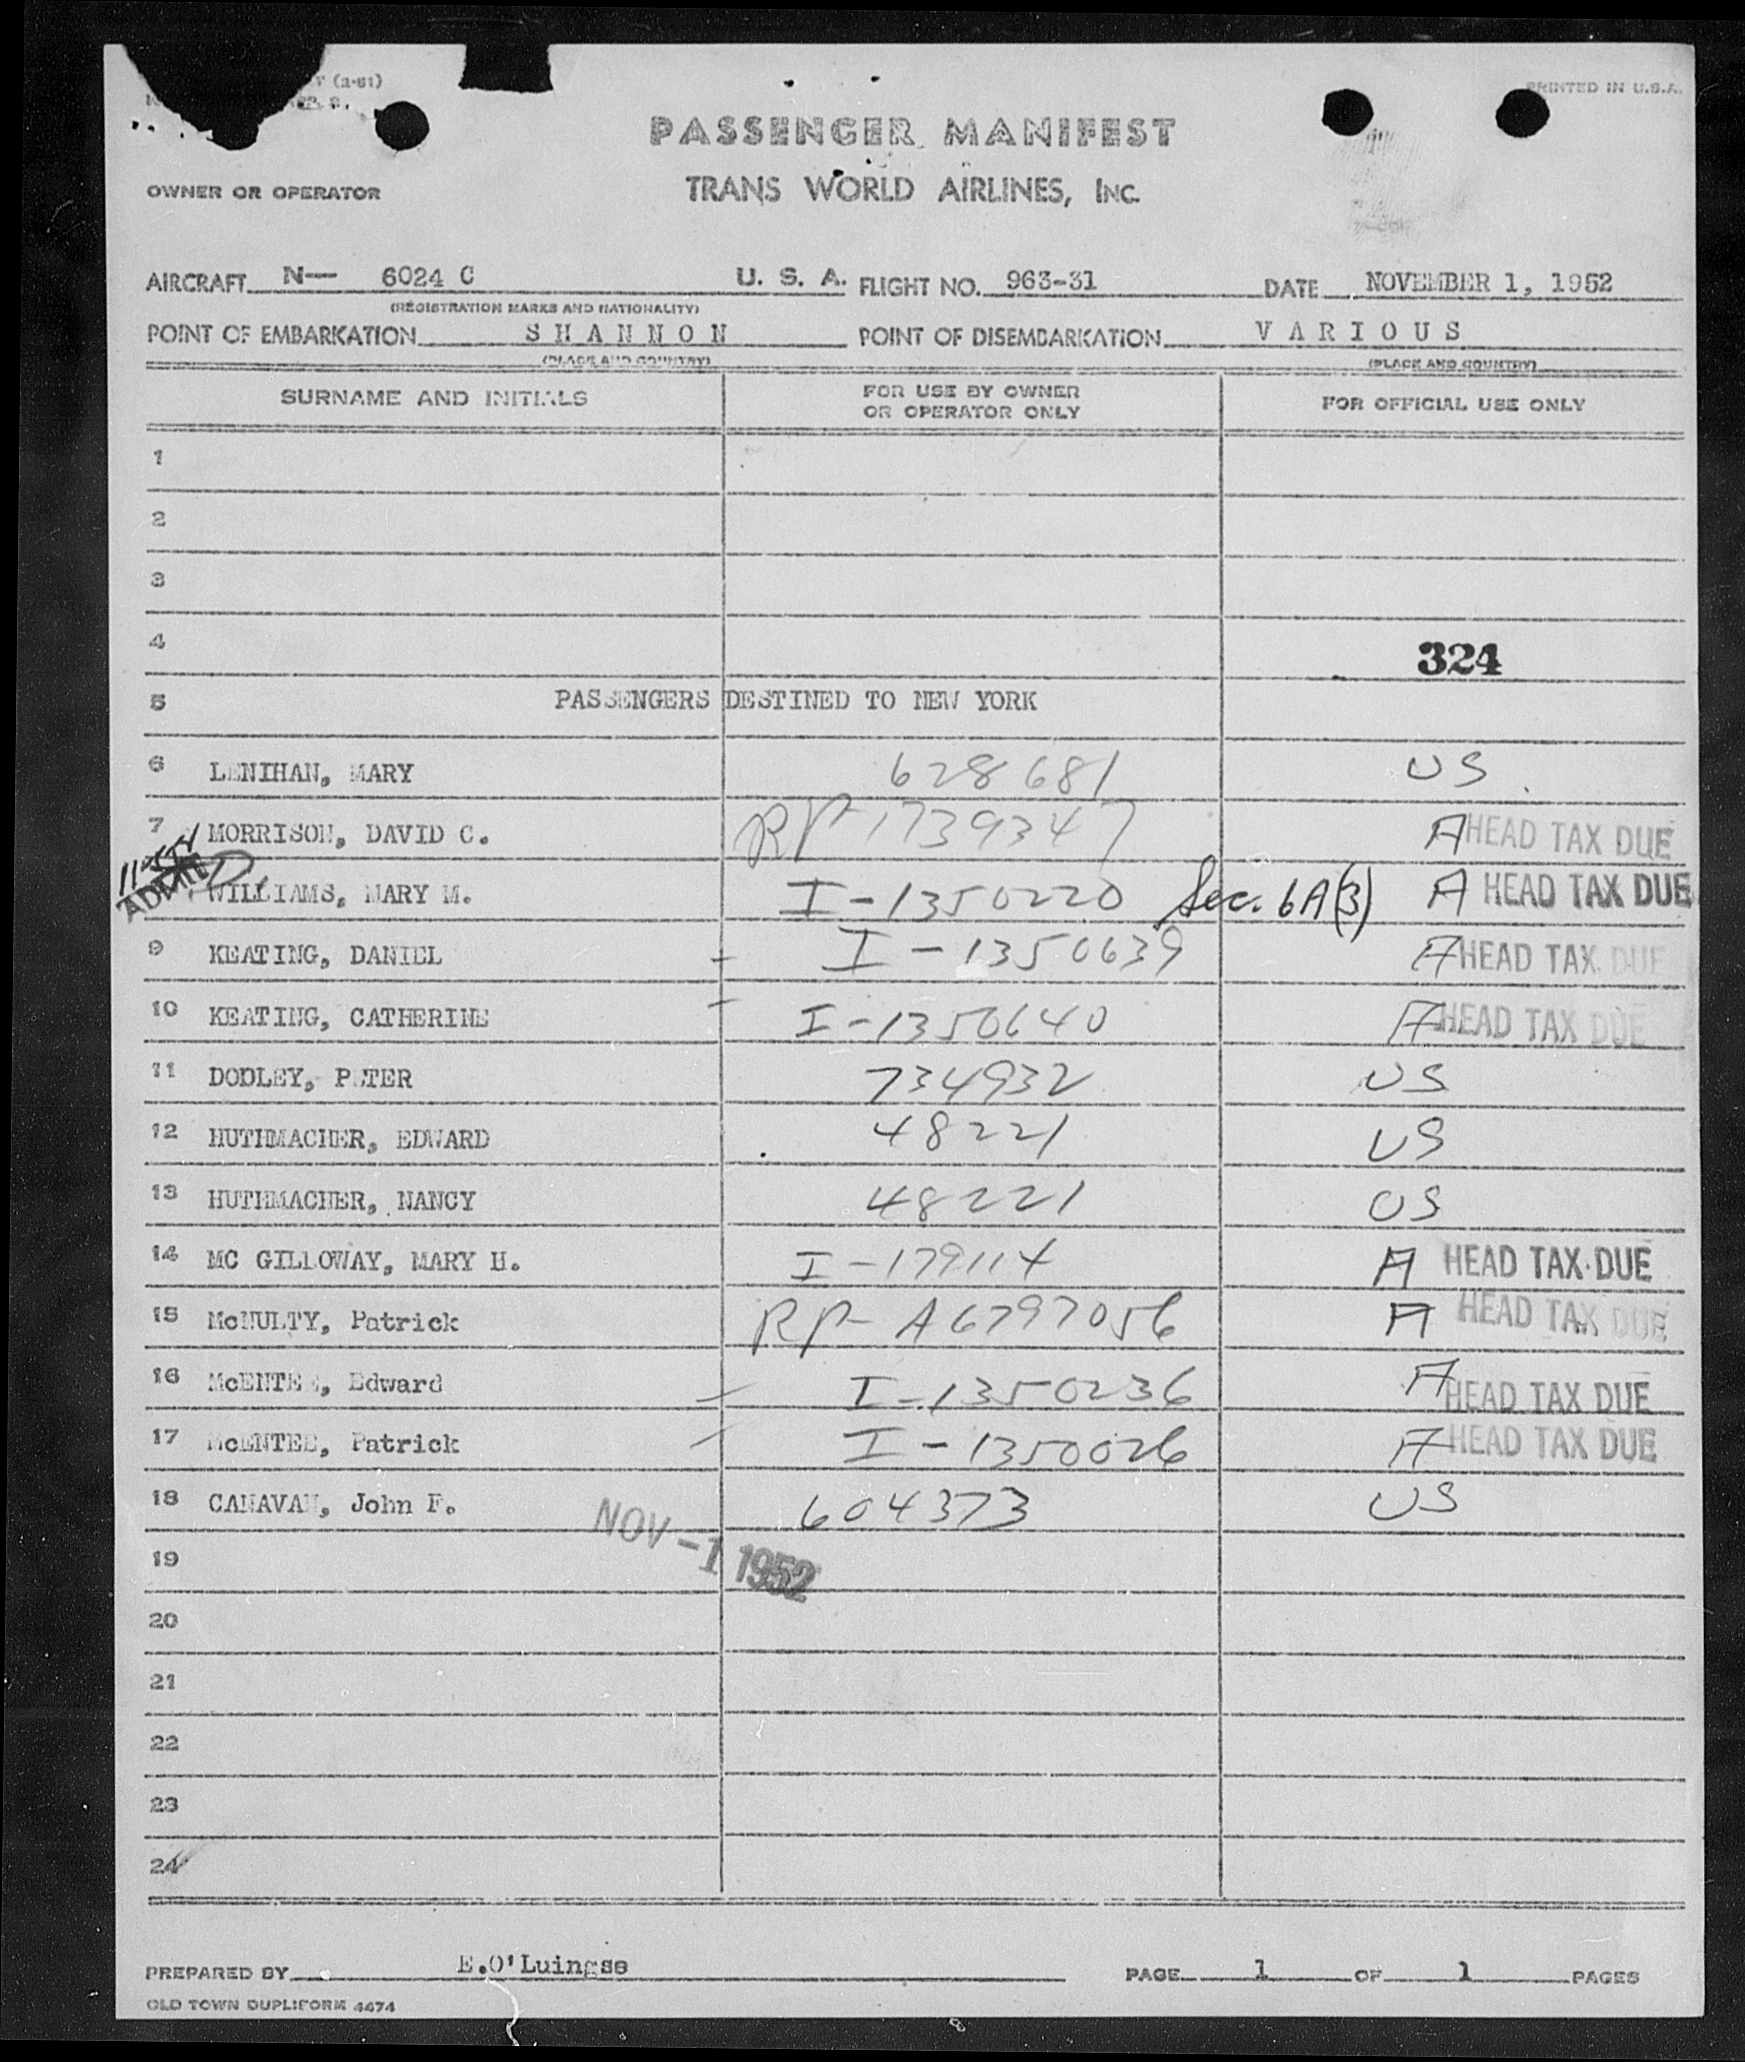 (2-51)
PRINTED IN U.S.A.
PASSENGER MANIFEST
OWNER OR OPERATOR
TRANS WORLD AIRLINES, INC.
AIRCRAFT N— 6024 C U. S. A. FLIGHT NO. 963-31 DATE NOVEMBER 1, 1952
(REGISTRATION MARKS AND NATIONALITY)
POINT OF EMBARKATION SHANNON POINT OF DISEMBARKATION VARIOUS
(PLACE AND COUNTRY) (PLACE AND COUNTRY)
SURNAME AND INITIALS FOR USE BY OWNER OR OPERATOR ONLY FOR OFFICIAL USE ONLY
1
2
3
4 324
5 PASSENGERS DESTINED TO NEW YORK
6 LENIHAN, MARY 628681 US
7 MORRISON, DAVID C. RP-1739347 A HEAD TAX DUE
ADMITTED WILLIAMS, MARY M. I-1350220 Sec. 6A(3) A HEAD TAX DUE
9 KEATING, DANIEL I-1350639 A HEAD TAX DUE
10 KEATING, CATHERINE I-1350640 A HEAD TAX DUE
11 DODLEY, PETER 734932 US
12 HUTHMACHER, EDWARD 48221 US
13 HUTHMACHER, NANCY 48221 US
14 MC GILLOWAY, MARY H. I-179114 A HEAD TAX DUE
15 McNULTY, Patrick RP-A6797056 A HEAD TAX DUE
16 McENTEE, Edward I-1350236 A HEAD TAX DUE
17 McENTEE, Patrick I-1350026 A HEAD TAX DUE
18 CANAVAN, John F. 604373 US
NOV -1 1952
19
20
21
22
23
24
PREPARED BY E.O'Luingse PAGE 1 OF 1 PAGES
OLD TOWN DUPLIFORM 4474